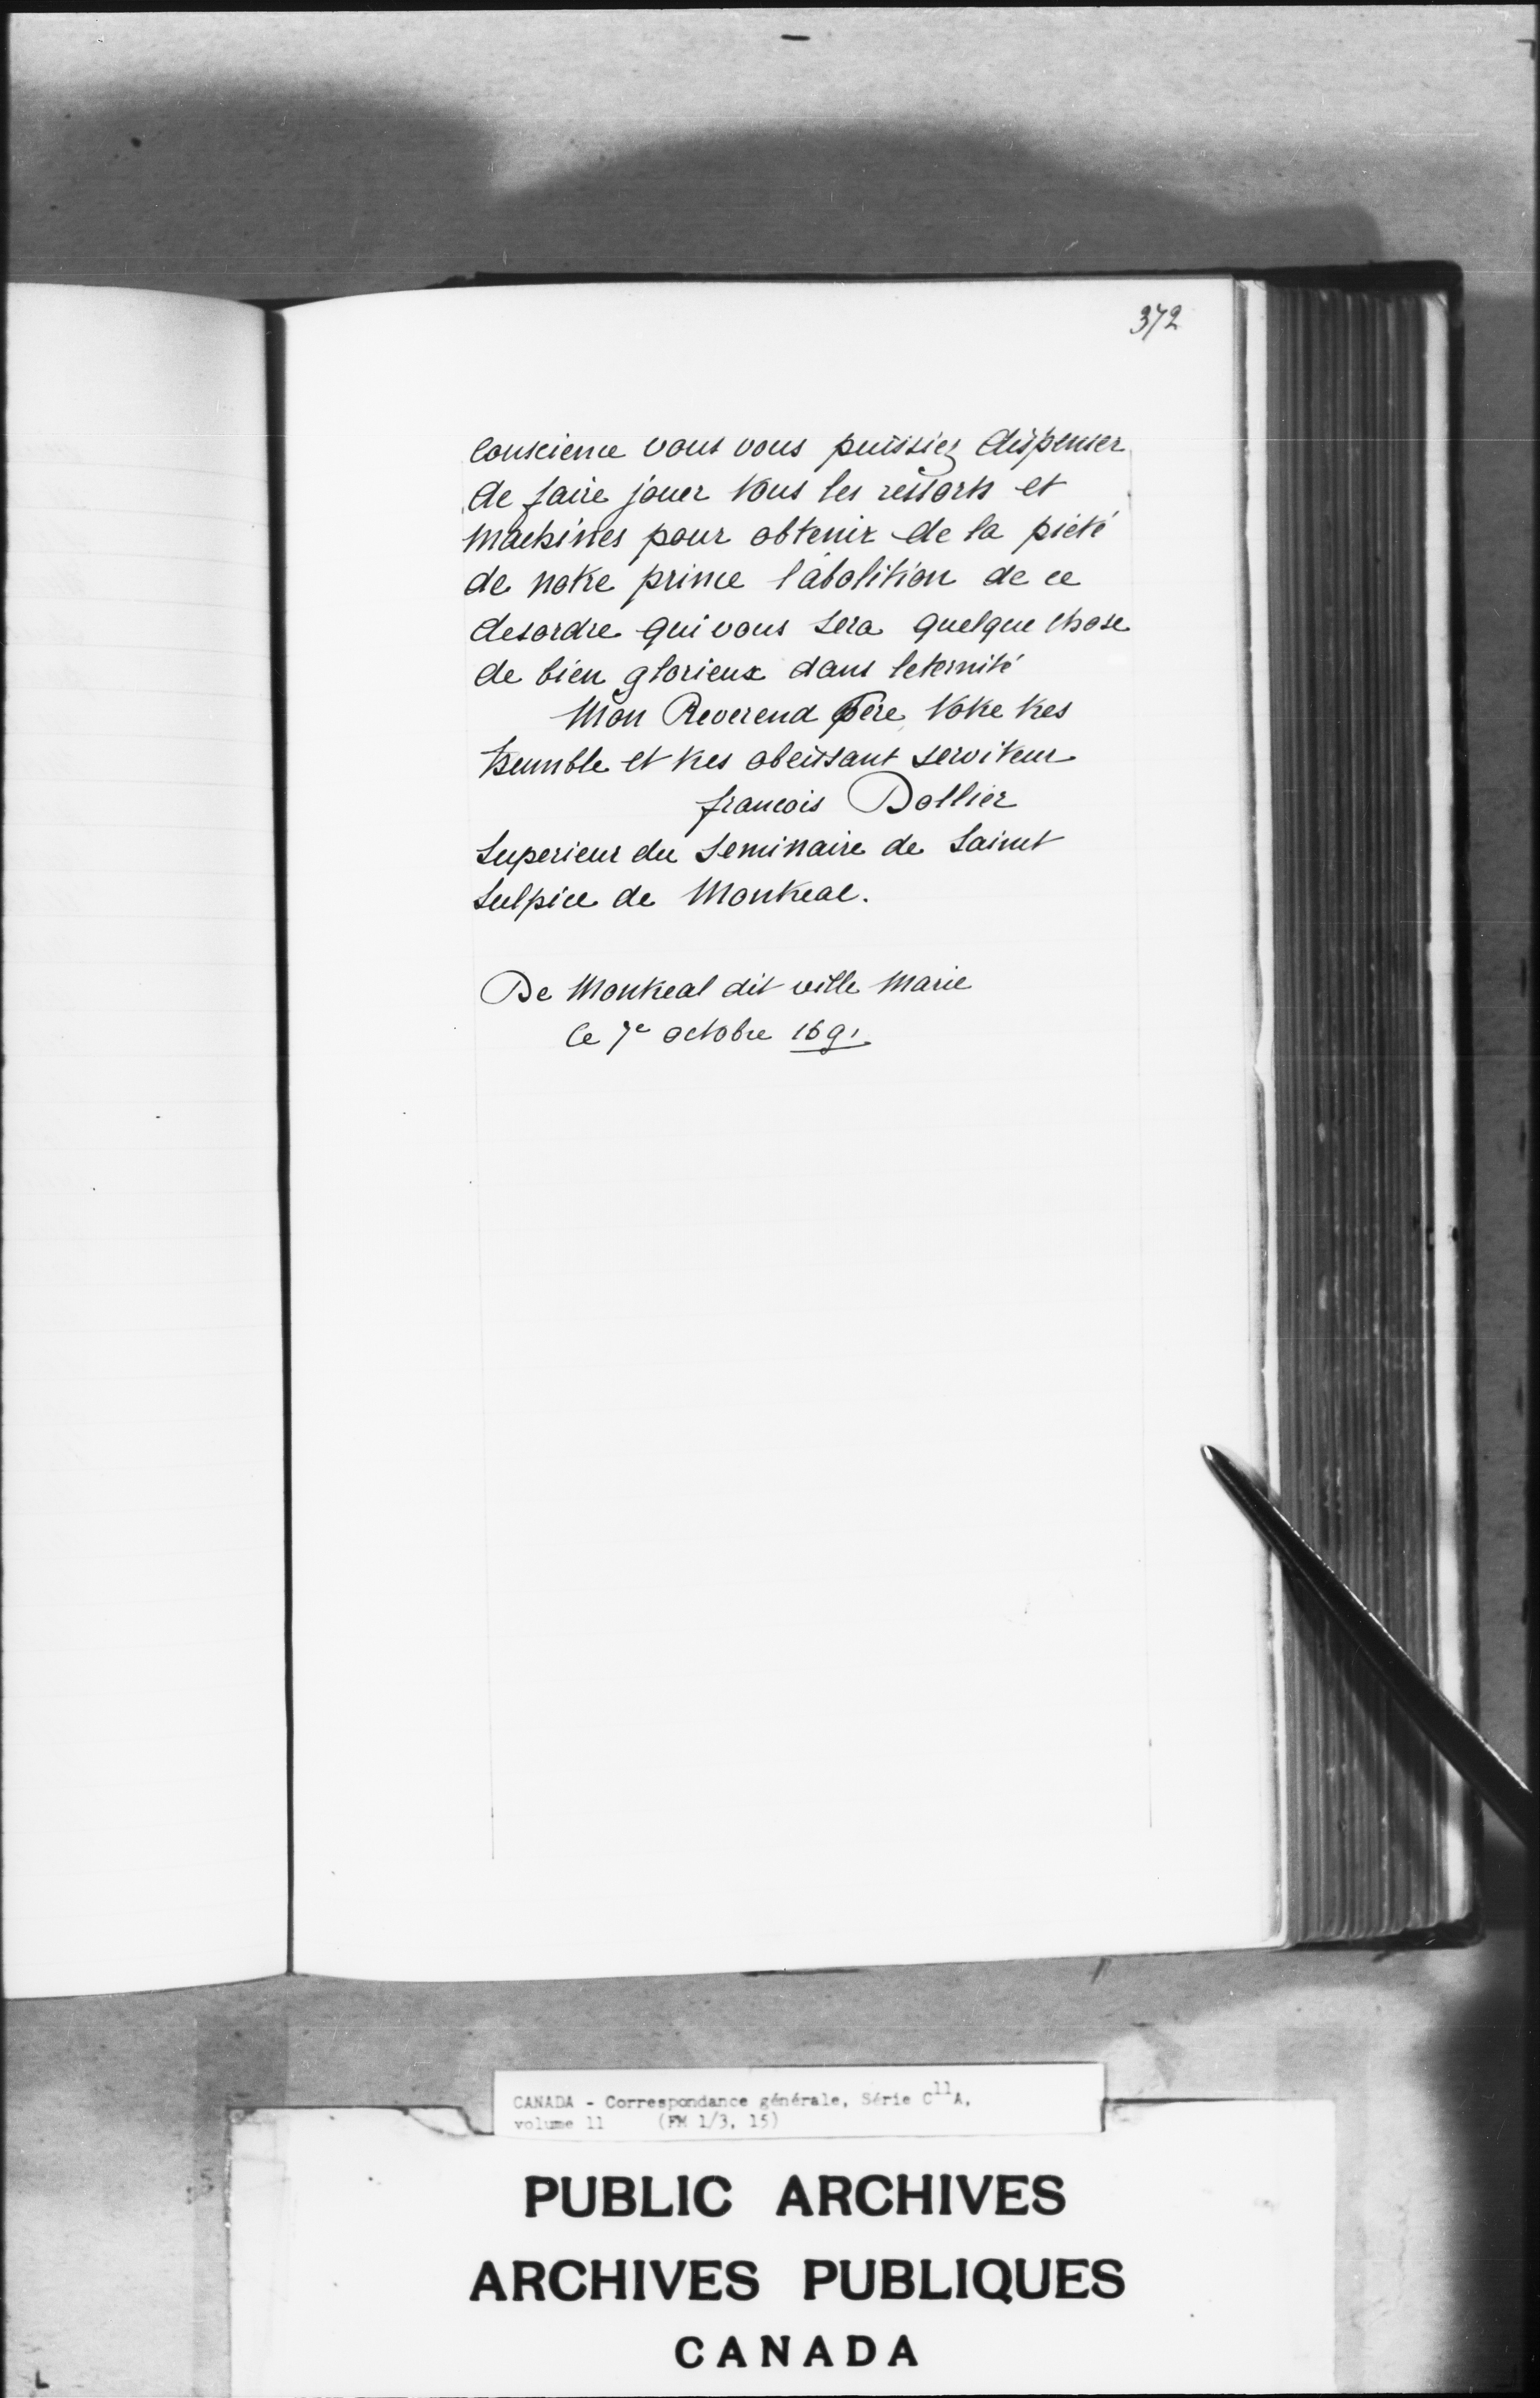 372
conscience vous vous puissiez dispenser
de faire jouer tous les ressorts et
machines pour obtenir de la piété
de notre prince l'abolition de ce
desordre qui vous sera quelque chose
de bien glorieux dans leternité
Mon Reverend Père, Votre tres
humble et tres obeissant serviteur
francois Dollier
Superieur du Seminaire de Saint
Sulpice de Montreal.
De Montreal dit ville Marie
Ce 7e octobre 1691.
CANADA - Correspondance générale, Série C11A,
volume 11 (FM 1/3, 15)
PUBLIC ARCHIVES
ARCHIVES PUBLIQUES
CANADA